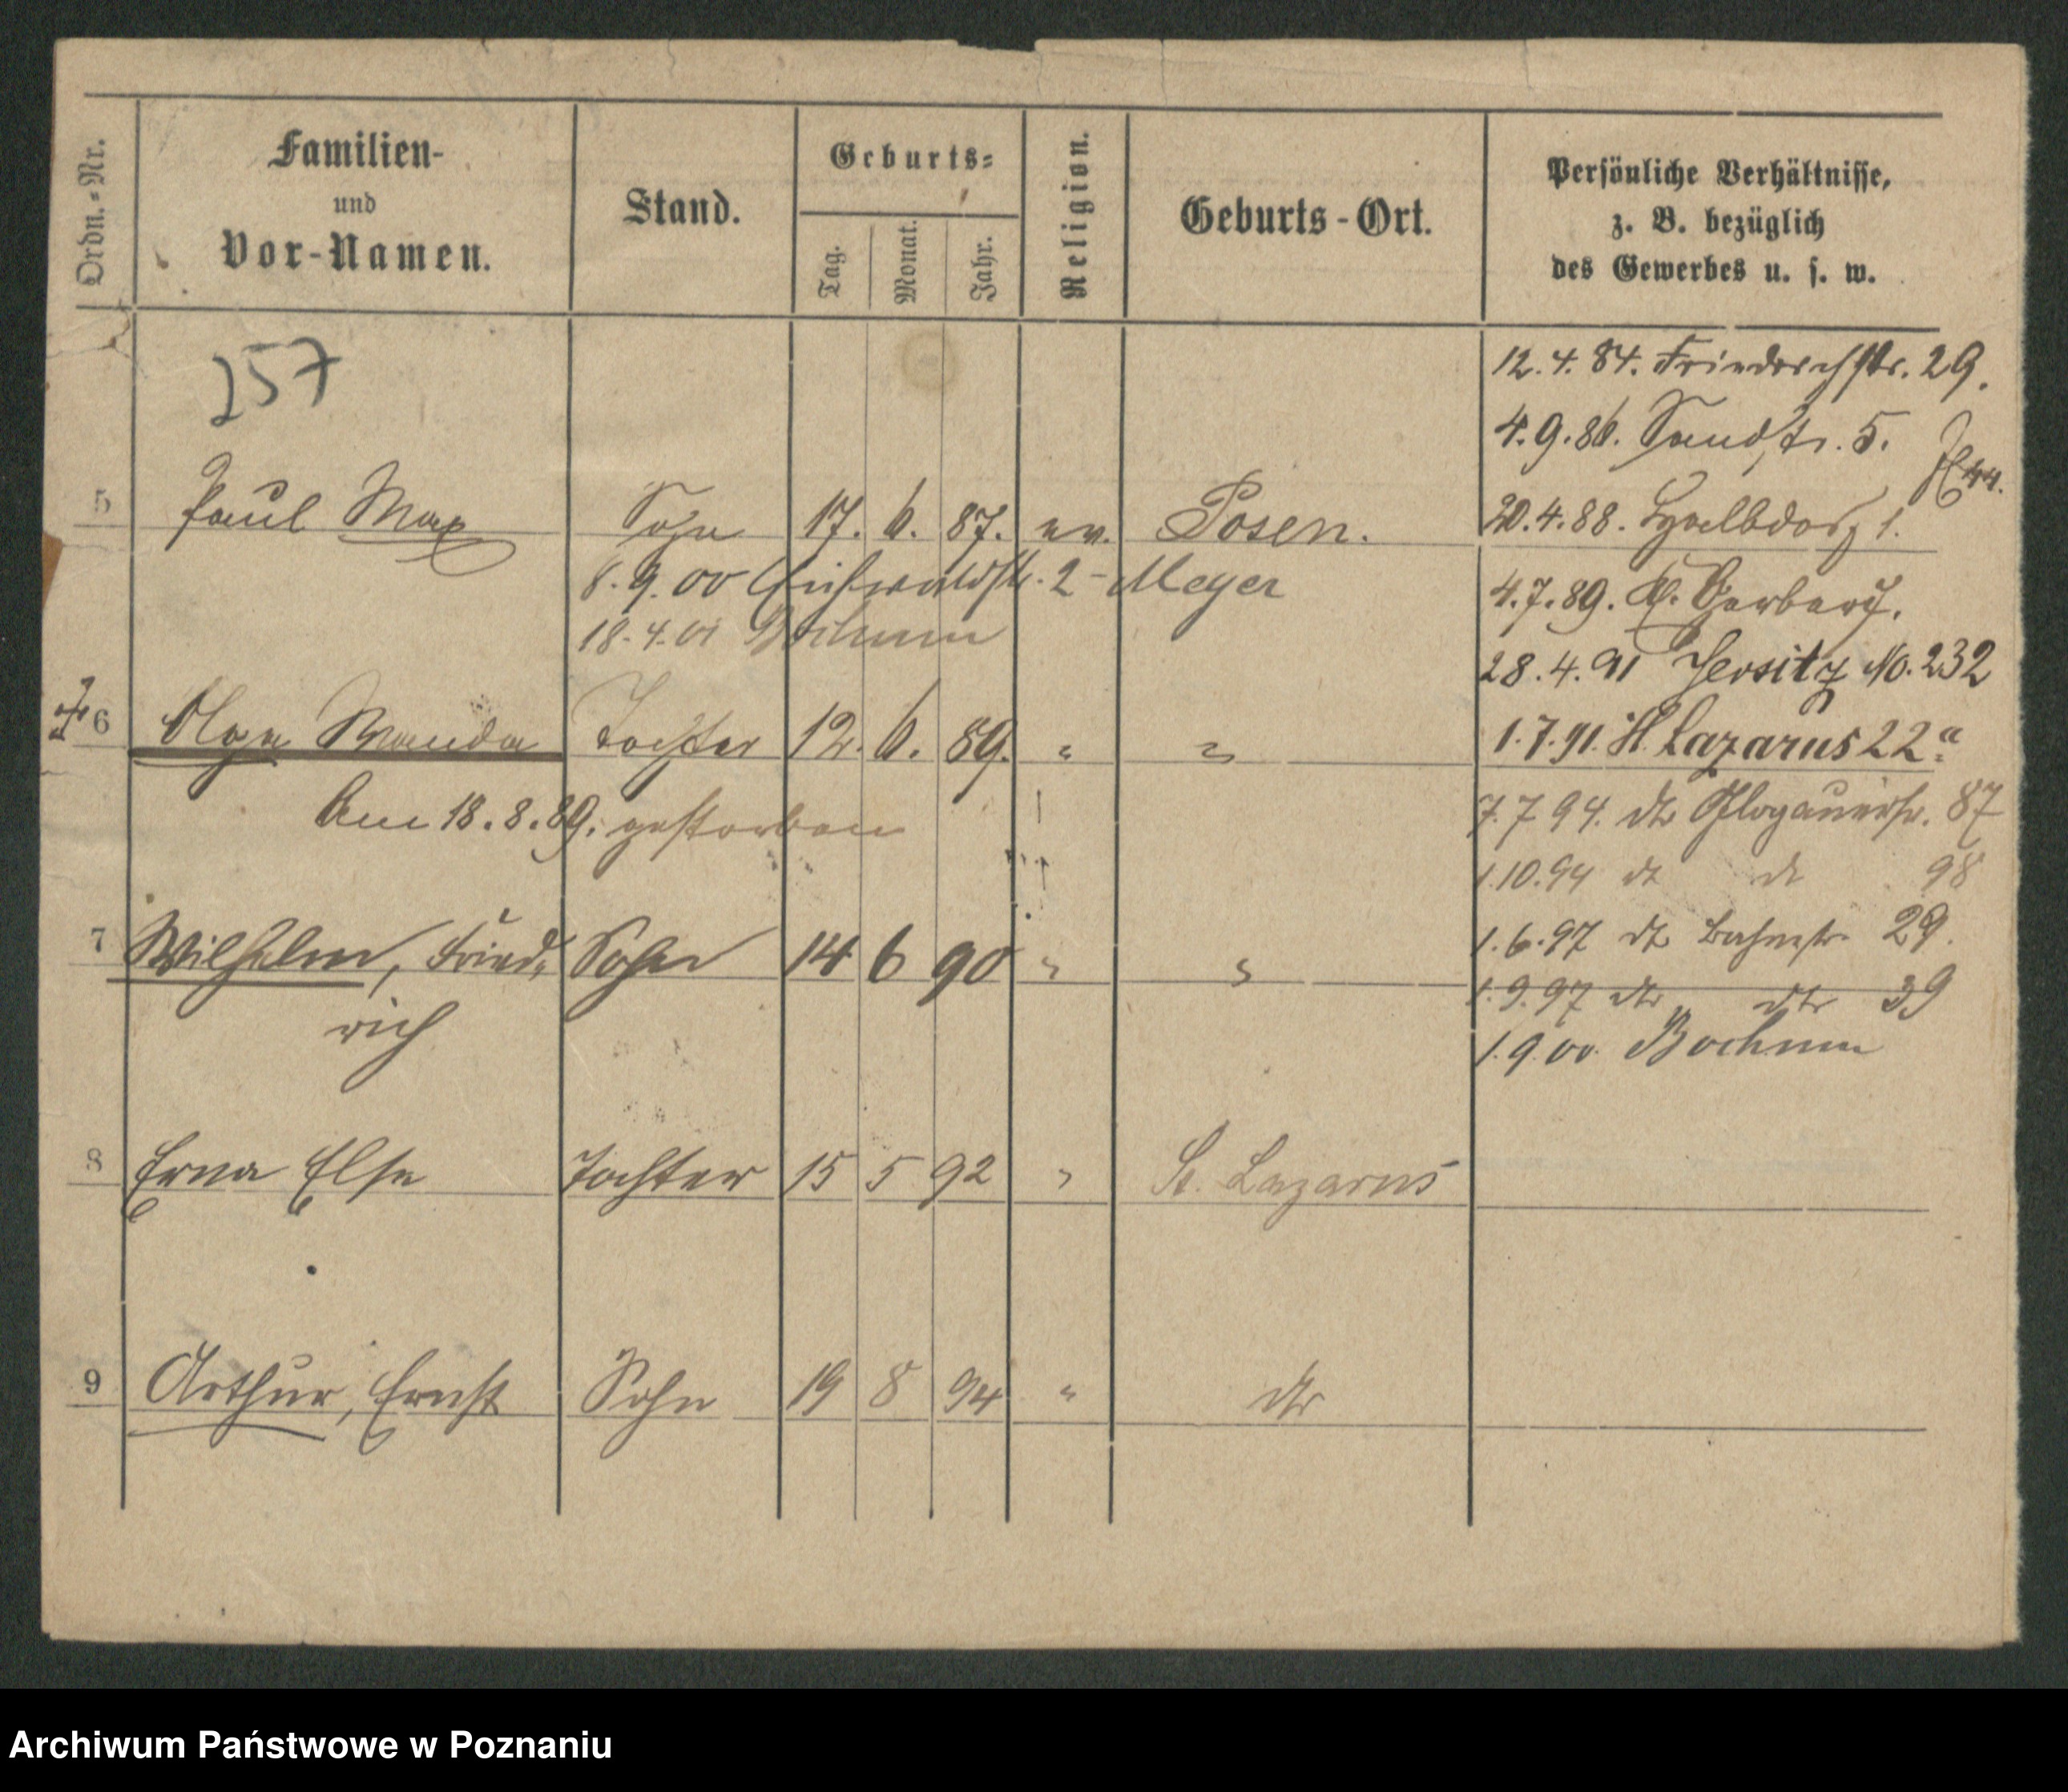 Ordn.-Nr.
Familien-
und
Vor-Namen.
Stand.
Geburts-
Tag.
Monat.
Jahr.
Religion.
Geburts-Ort.
Persönliche Verhältnisse,
z. B. bezüglich
des Gewerbes u. s. w.
257
12.4.84. Friedrichstr. 29.
4.9.86. Sandstr. 5.
5 Paul Max Sohn 17. 6. 87. ev. Posen.
20.4.88. Halbdorf 1.
8.9.00 Eichwaldstr. 2 - Meyer
4.7.89. Kl. Gerberstr.
18.4.01 Bochum
28.4.91 Jersitz No. 232
6 Olga Wanda Tochter 12. 6. 89. " "
1.7.91. St. Lazarus 22a.
Am 18.8.89. gestorben
7.7 94. dto Glogauerstr. 87
1.10.94 dt dt 98
7 Wilhelm, Fried- Sohn 14 6 90 " "
rich
1.6.97 dt Bahnstr. 29.
1.9.97 dto dto 39
1.9.00. Bochum
8 Erna Else Tochter 15 5 92 " St. Lazarus
9 Arthur, Ernst Sohn 19 8 94 " dto
Archiwum Państwowe w Poznaniu